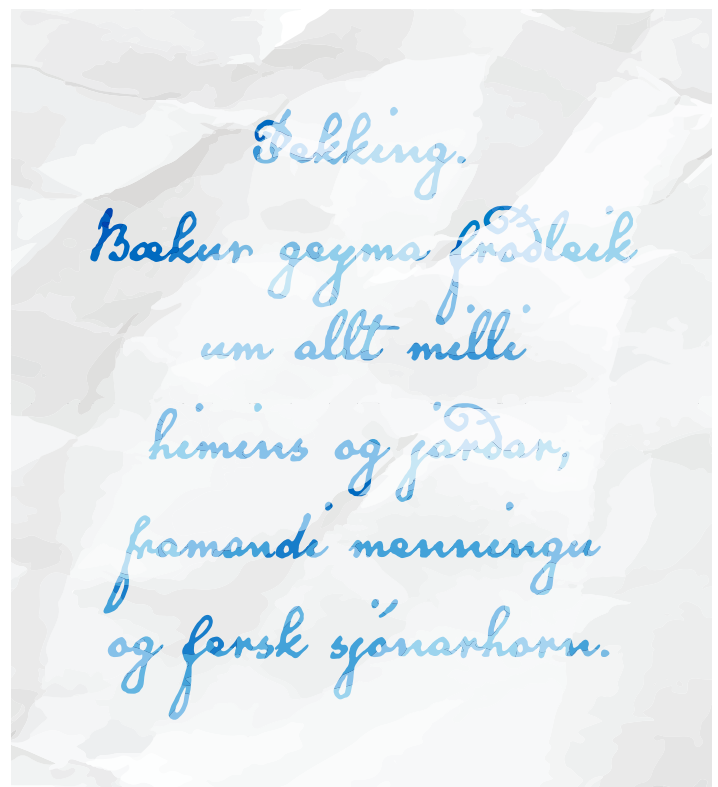 Þekking.
Bækur geyma fróðleik
um allt milli
himins og jarðar,
framandi menningu
og fersk sjónarhorn.